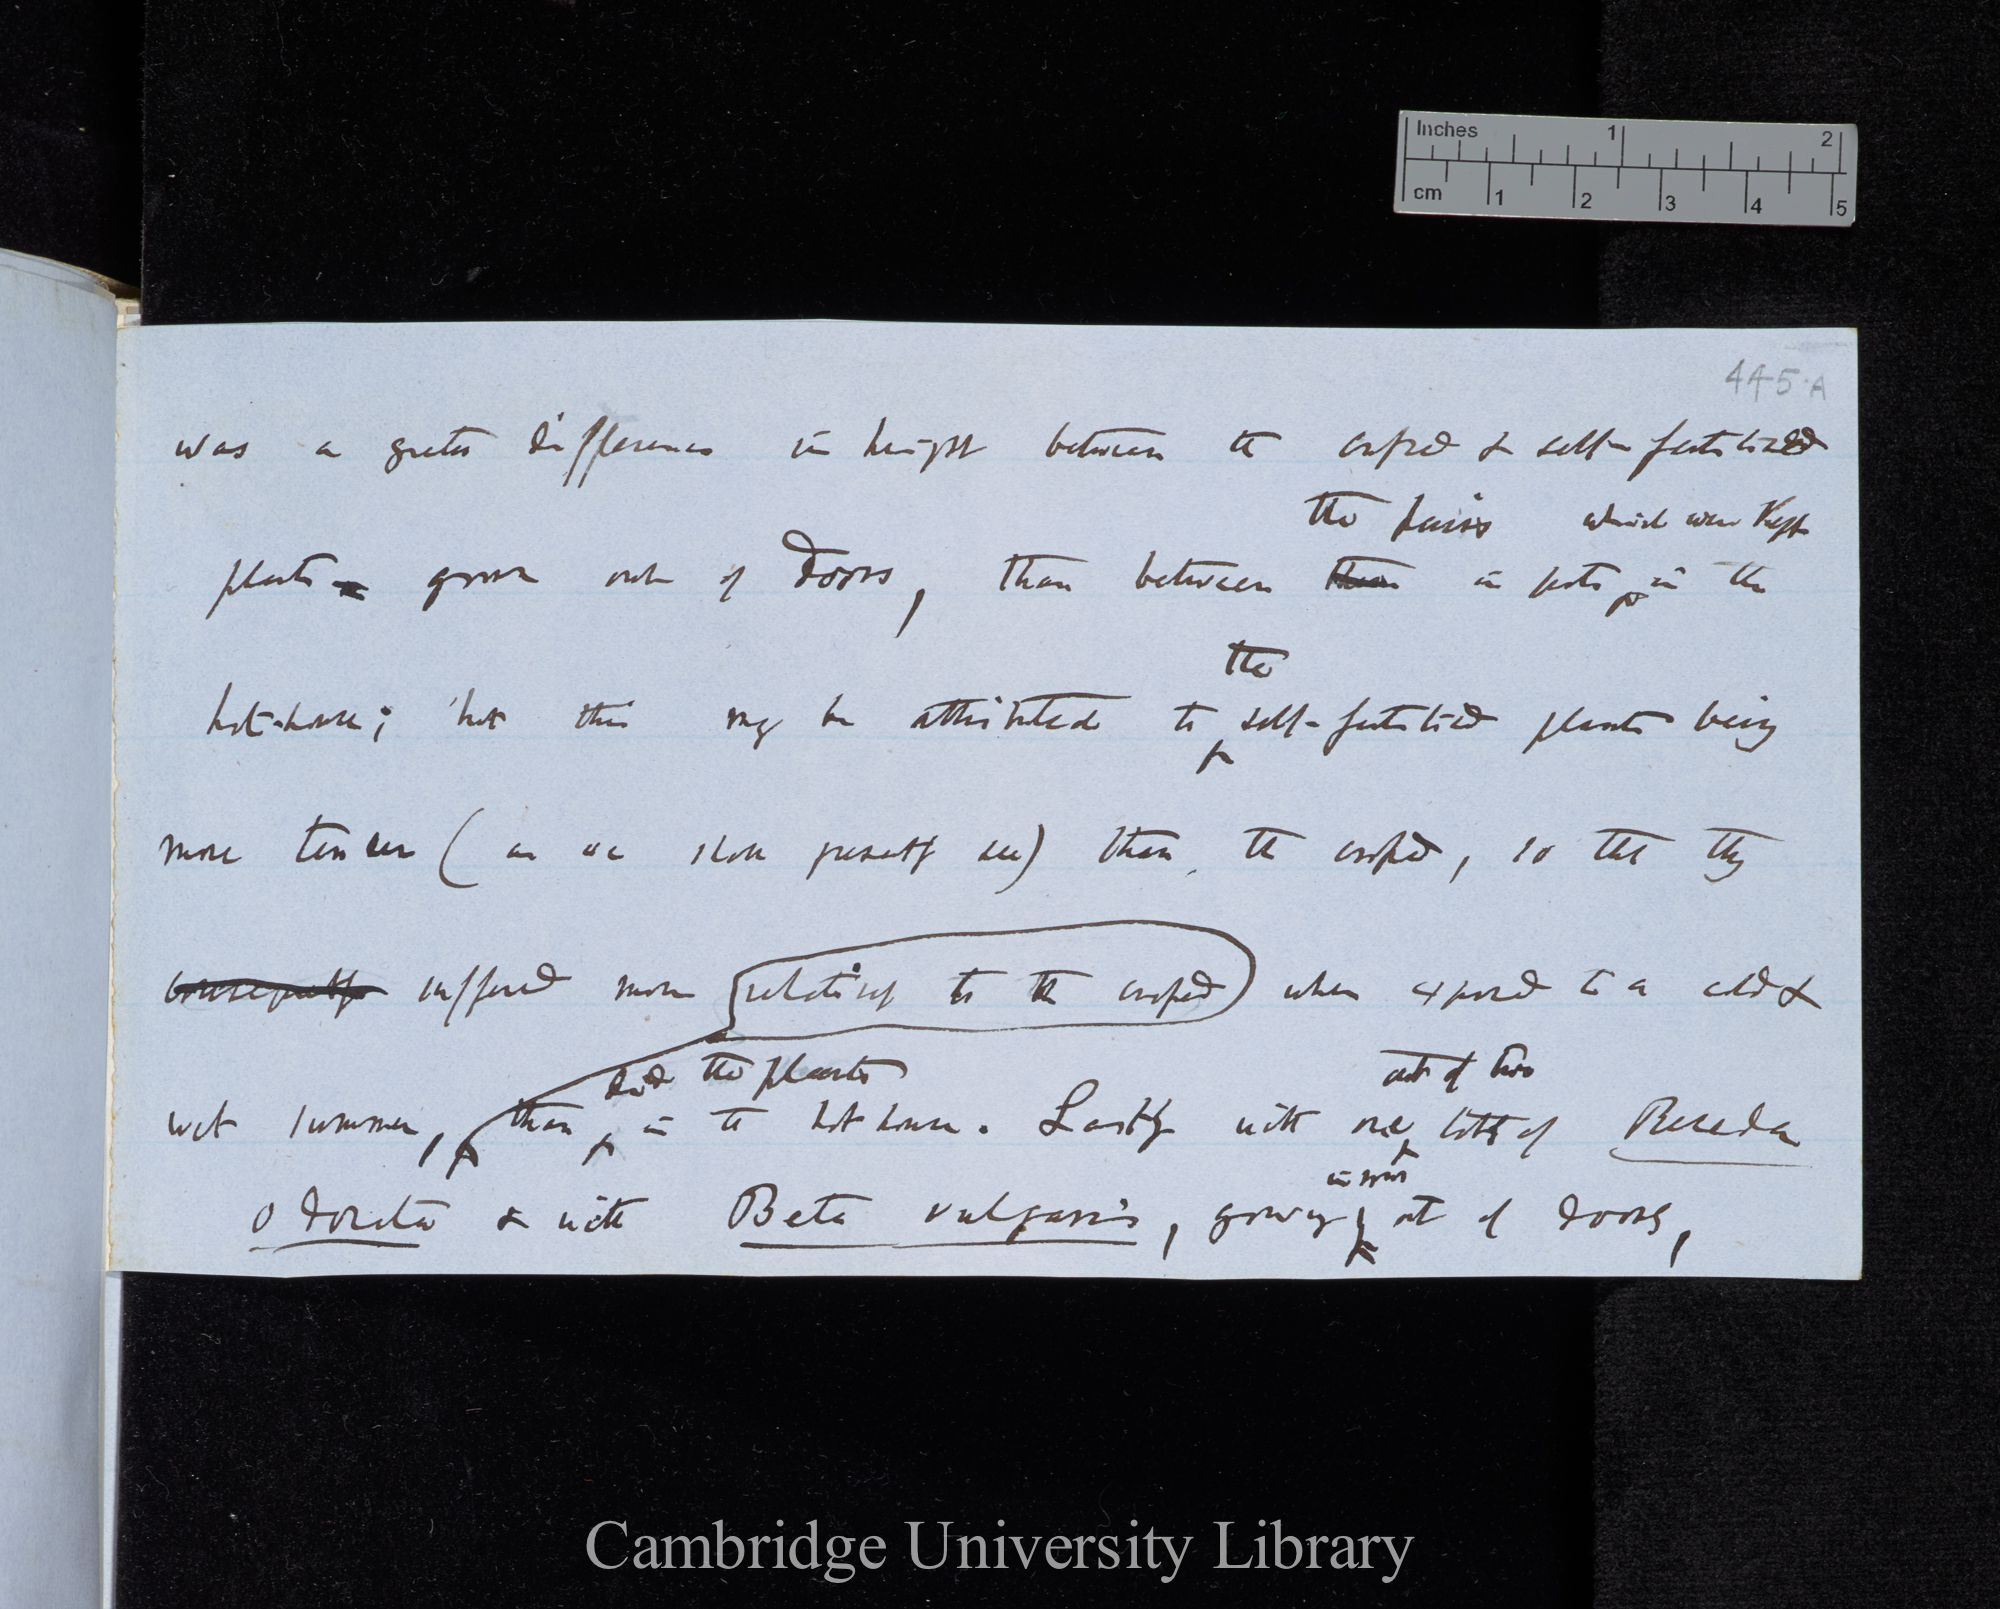 Inches 1 2
cm 1 2 3 4 5
445.A
was a greater difference in height between the crossed & self-fertilised
the pairs which were kept
plants grown out of doors, than between them in pots in the
the
hot-house; but this may be attributed to self-fertilised plants being
more tender (as we shall presently see) than the crossed, so that they
consequently suffered more relatively to the crossed when exposed to a cold &
did the plants out of two
wet summer, than in the hot house. Lastly with one lots of Reseda
in rows
odorata & with Beta vulgaris, growing out of doors,
Cambridge University Library